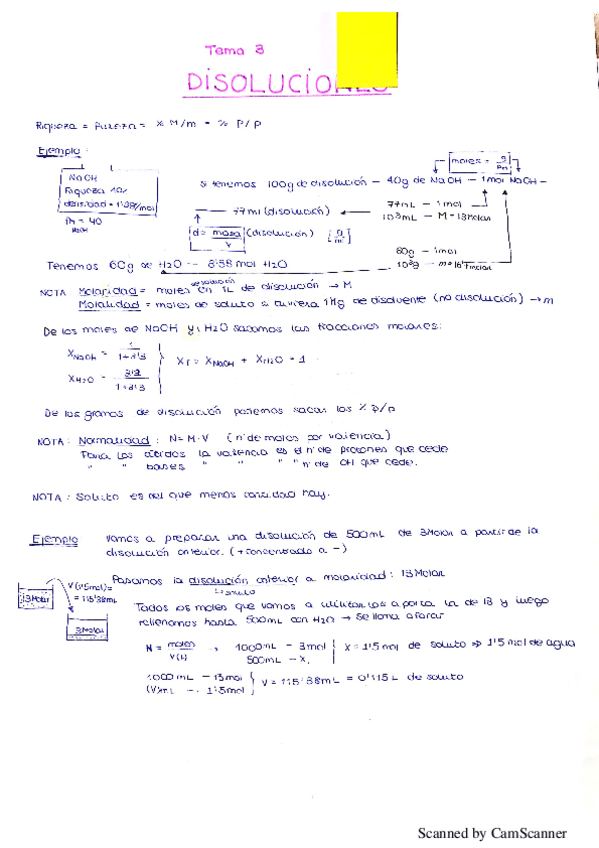 Tema 3
DISOLUCIONES
Riqueza = Pureza = % M/m = % P/P
Ejemplo:
NaOH
Riqueza
densidad =
m = 40
NaOH
si tenemos 100g de disolución - 40g de NaOH - 1mol NaOH -
moles =
77ml (disolución)
77mL - 1mol
10³mL - M = 13Molar
d = masa/V (disolución)
60g - 1mol
10³g - m =
Tenemos 60g de H2O
NOTA: Molaridad = moles en 1L de disolución → M
disolución
Molalidad = moles de soluto si tuviera 1Kg de disolvente (no disolución) → m
De los moles de NaOH y H2O sacamos las fracciones molares:
XNaOH = 1
XH2O =
XT = XNaOH + XH2O = 1
De los gramos de disolución podemos sacar los % P/P
NOTA: Normalidad: N = M·V (nº de moles por valencia)
Para los ácidos la valencia es el nº de protones que cede
" " bases " " " " nº de OH que cede.
NOTA: Soluto es del que menos cantidad hay.
Ejemplo Vamos a preparar una disolución de 500mL de 3Molar a partir de la
disolución anterior. (+ concentrado a -)
Pasamos la disolución anterior a molaridad: 13Molar
soluto
13Molar
V (1'5mol) =
= 115'38mL
3Molar
Todos los moles que vamos a utilizar los aporta la de 13 y luego
rellenamos hasta 500mL con H2O → Se llama aforar
= moles/V(L) → 1000mL - 3mol
500mL - X
X = 1'5 mol de soluto ⇒ 1'5 mol de agua
1000mL - 13mol
(V)mL - 1'5mol
V = 115'38mL = 0'115L de soluto
Scanned by CamScanner